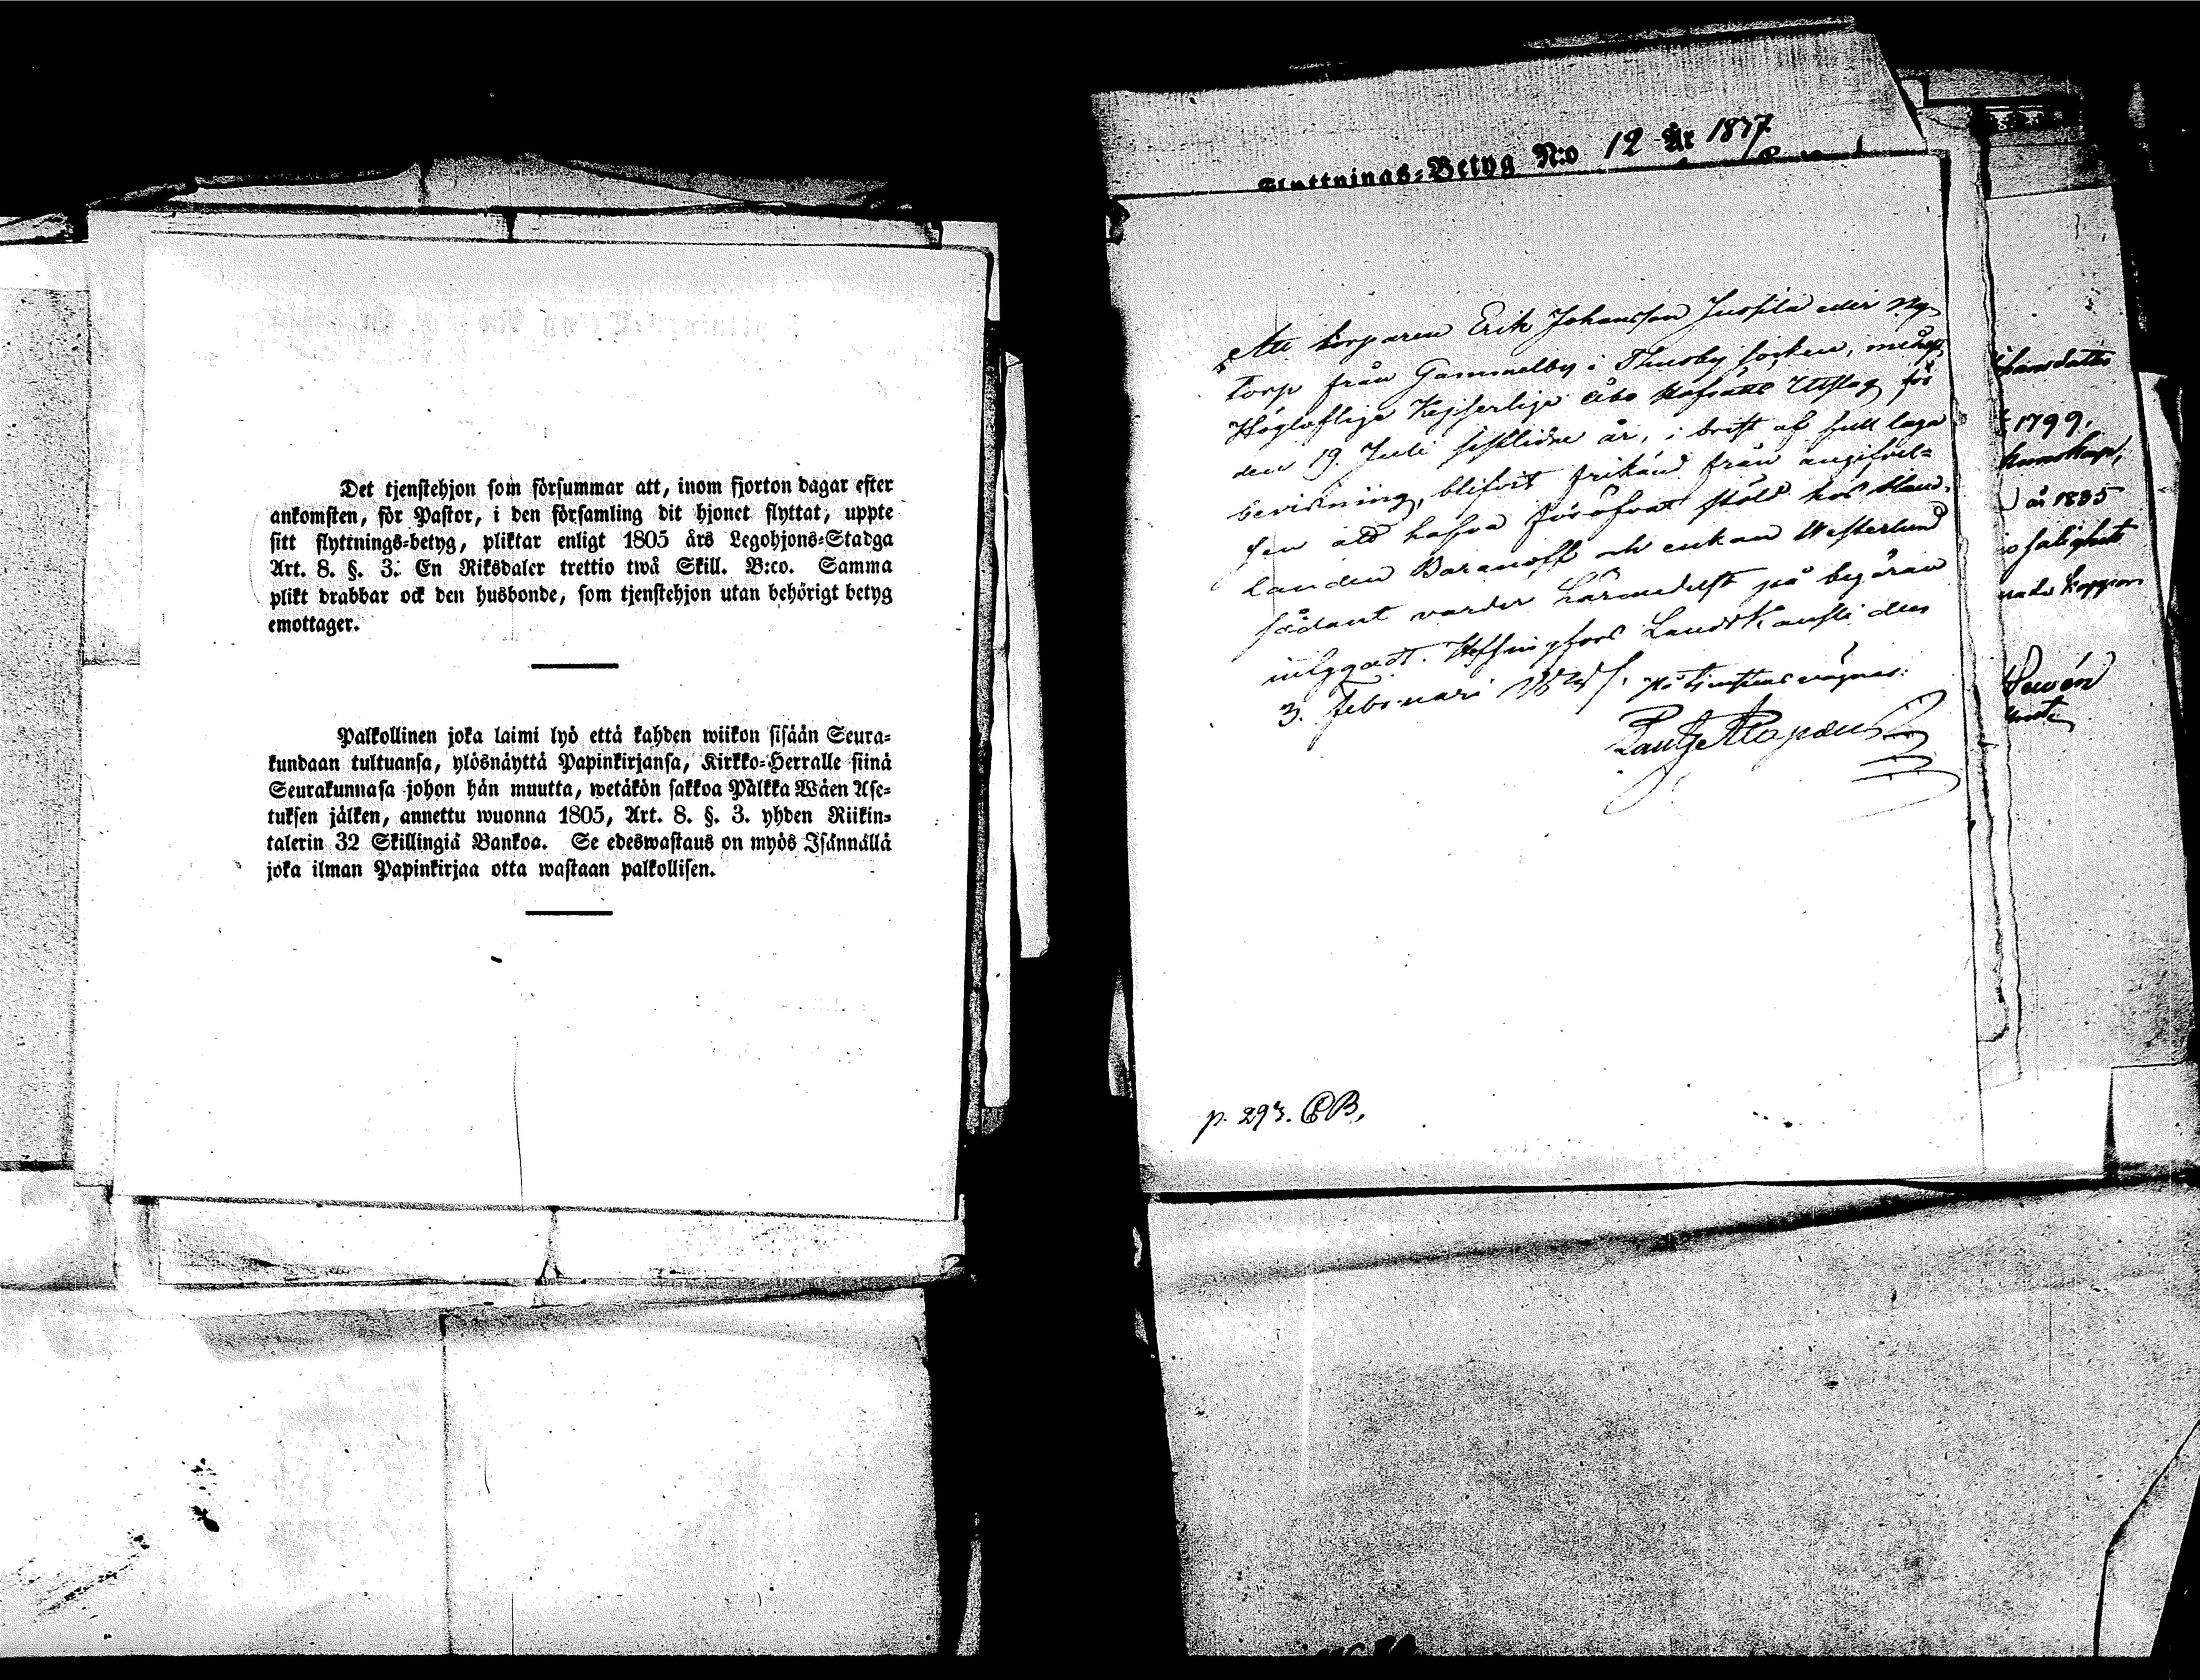 Det tjenstehjon som försummar att, inom fjorton dagar efter
ankomsten, för Pastor, i den församling dit hjonet flyttat, uppte
sitt flyttnings-betyg, pliktar enligt 1805 års Legohjons-Stadga
Art. 8. §. 3. En Riksdaler trettio twå Skill. B:co. Samma
plikt drabbar ock den husbonde, som tjenstehjon utan behörigt betyg
emottager.
Palkollinen joka laimi lyö että kahden wiikon sisään Seura-
kundaan tultuansa, ylösnäyttä Papinkirjansa, Kirkko-Herralle siinä
Seurakunnasa johon hän muutta, wetäkön sakkoa Palkka Wäen Ase-
tuksen jälken, annettu wuonna 1805, Art. 8. §. 3. yhden Riikin-
talerin 32 Skillingiä Bankoa. Se edeswastaus on myös Isännällä
joka ilman Papinkirjaa otta wastaan palkollisen.
Flyttnings-Betyg N:o 12 År 1837
Att torparen Erik Johansson Jussila eller Ny-
torp från Gammelby i Thusby socken, medelst
Högloflige Kejserlige Åbo Hofrätts Utslag för
den 19. Juli sistlidne år, i brist af full laga
bevisning, blifvit frikänd från angifvel-
sen att hafva föröfvat stöld hos Hand-
landen Baranoff och enkan Westerlund
sådant varder härmedelst på begäran
intygadt. Helsingfors Landskansli den
3. Februari På tjenstens vägnar:
p. 293. CB.
hansdotter
1799.
kunskap,
år 1835
salighets
Koppor